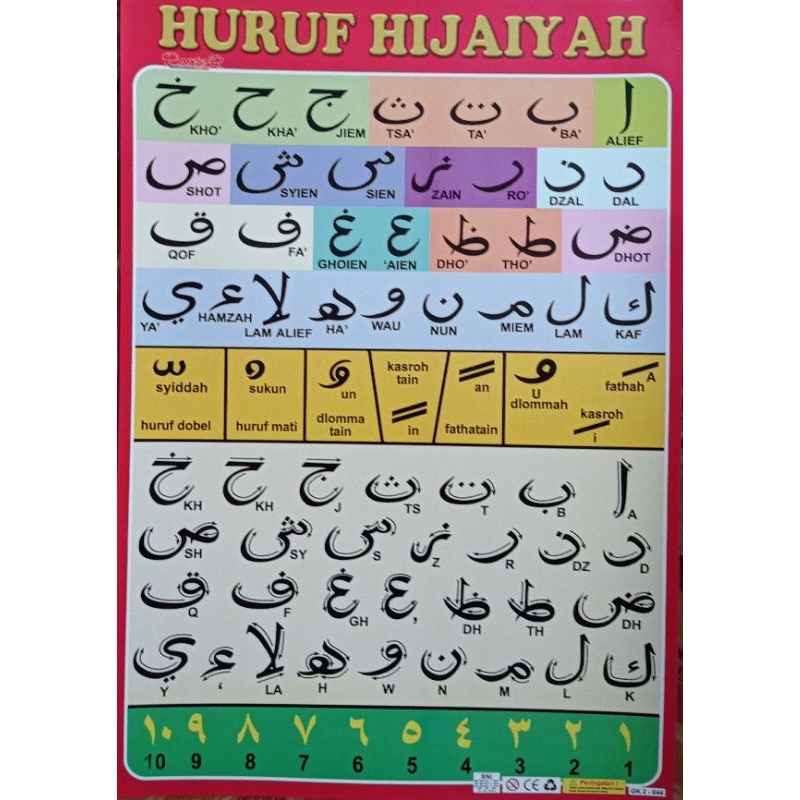 HURUF HIJAIYAH
ا ب ت ث ج ح خ
KHO' KHA' JIEM TSA' TA' BA' ALIEF
د ذ ر ز س ش ص
SHOT SYIEN SIEN ZAIN RO' DZAL DAL
ض ط ظ ع غ ف ق
QOF FA' GHOIEN 'AIEN DHO' THO' DHOT
ك ل م ن و ه لا ء ي
YA' HAMZAH LAM ALIEF HA' WAU NUN MIEM LAM KAF
syiddah
huruf dobel
sukun
huruf mati
un
dlomma
tain
kasroh
tain
in
an
fathatain
U
dlommah
fathah A
kasroh
i
ا ب ت ث ج ح خ
KH KH J TS T B A
د ذ ر ز س ش ص
SH SY S Z R DZ D
ض ط ظ ع غ ف ق
Q F GH , DH TH DH
ك ل م ن و ه لا ء ي
Y ‘ LA H W N M L K
١ ٢ ٣ ٤ ٥ ٦ ٧ ٨ ٩ ١٠
10 9 8 7 6 5 4 3 2 1
SNI
CE
Peringatan !
GK 2 - 044